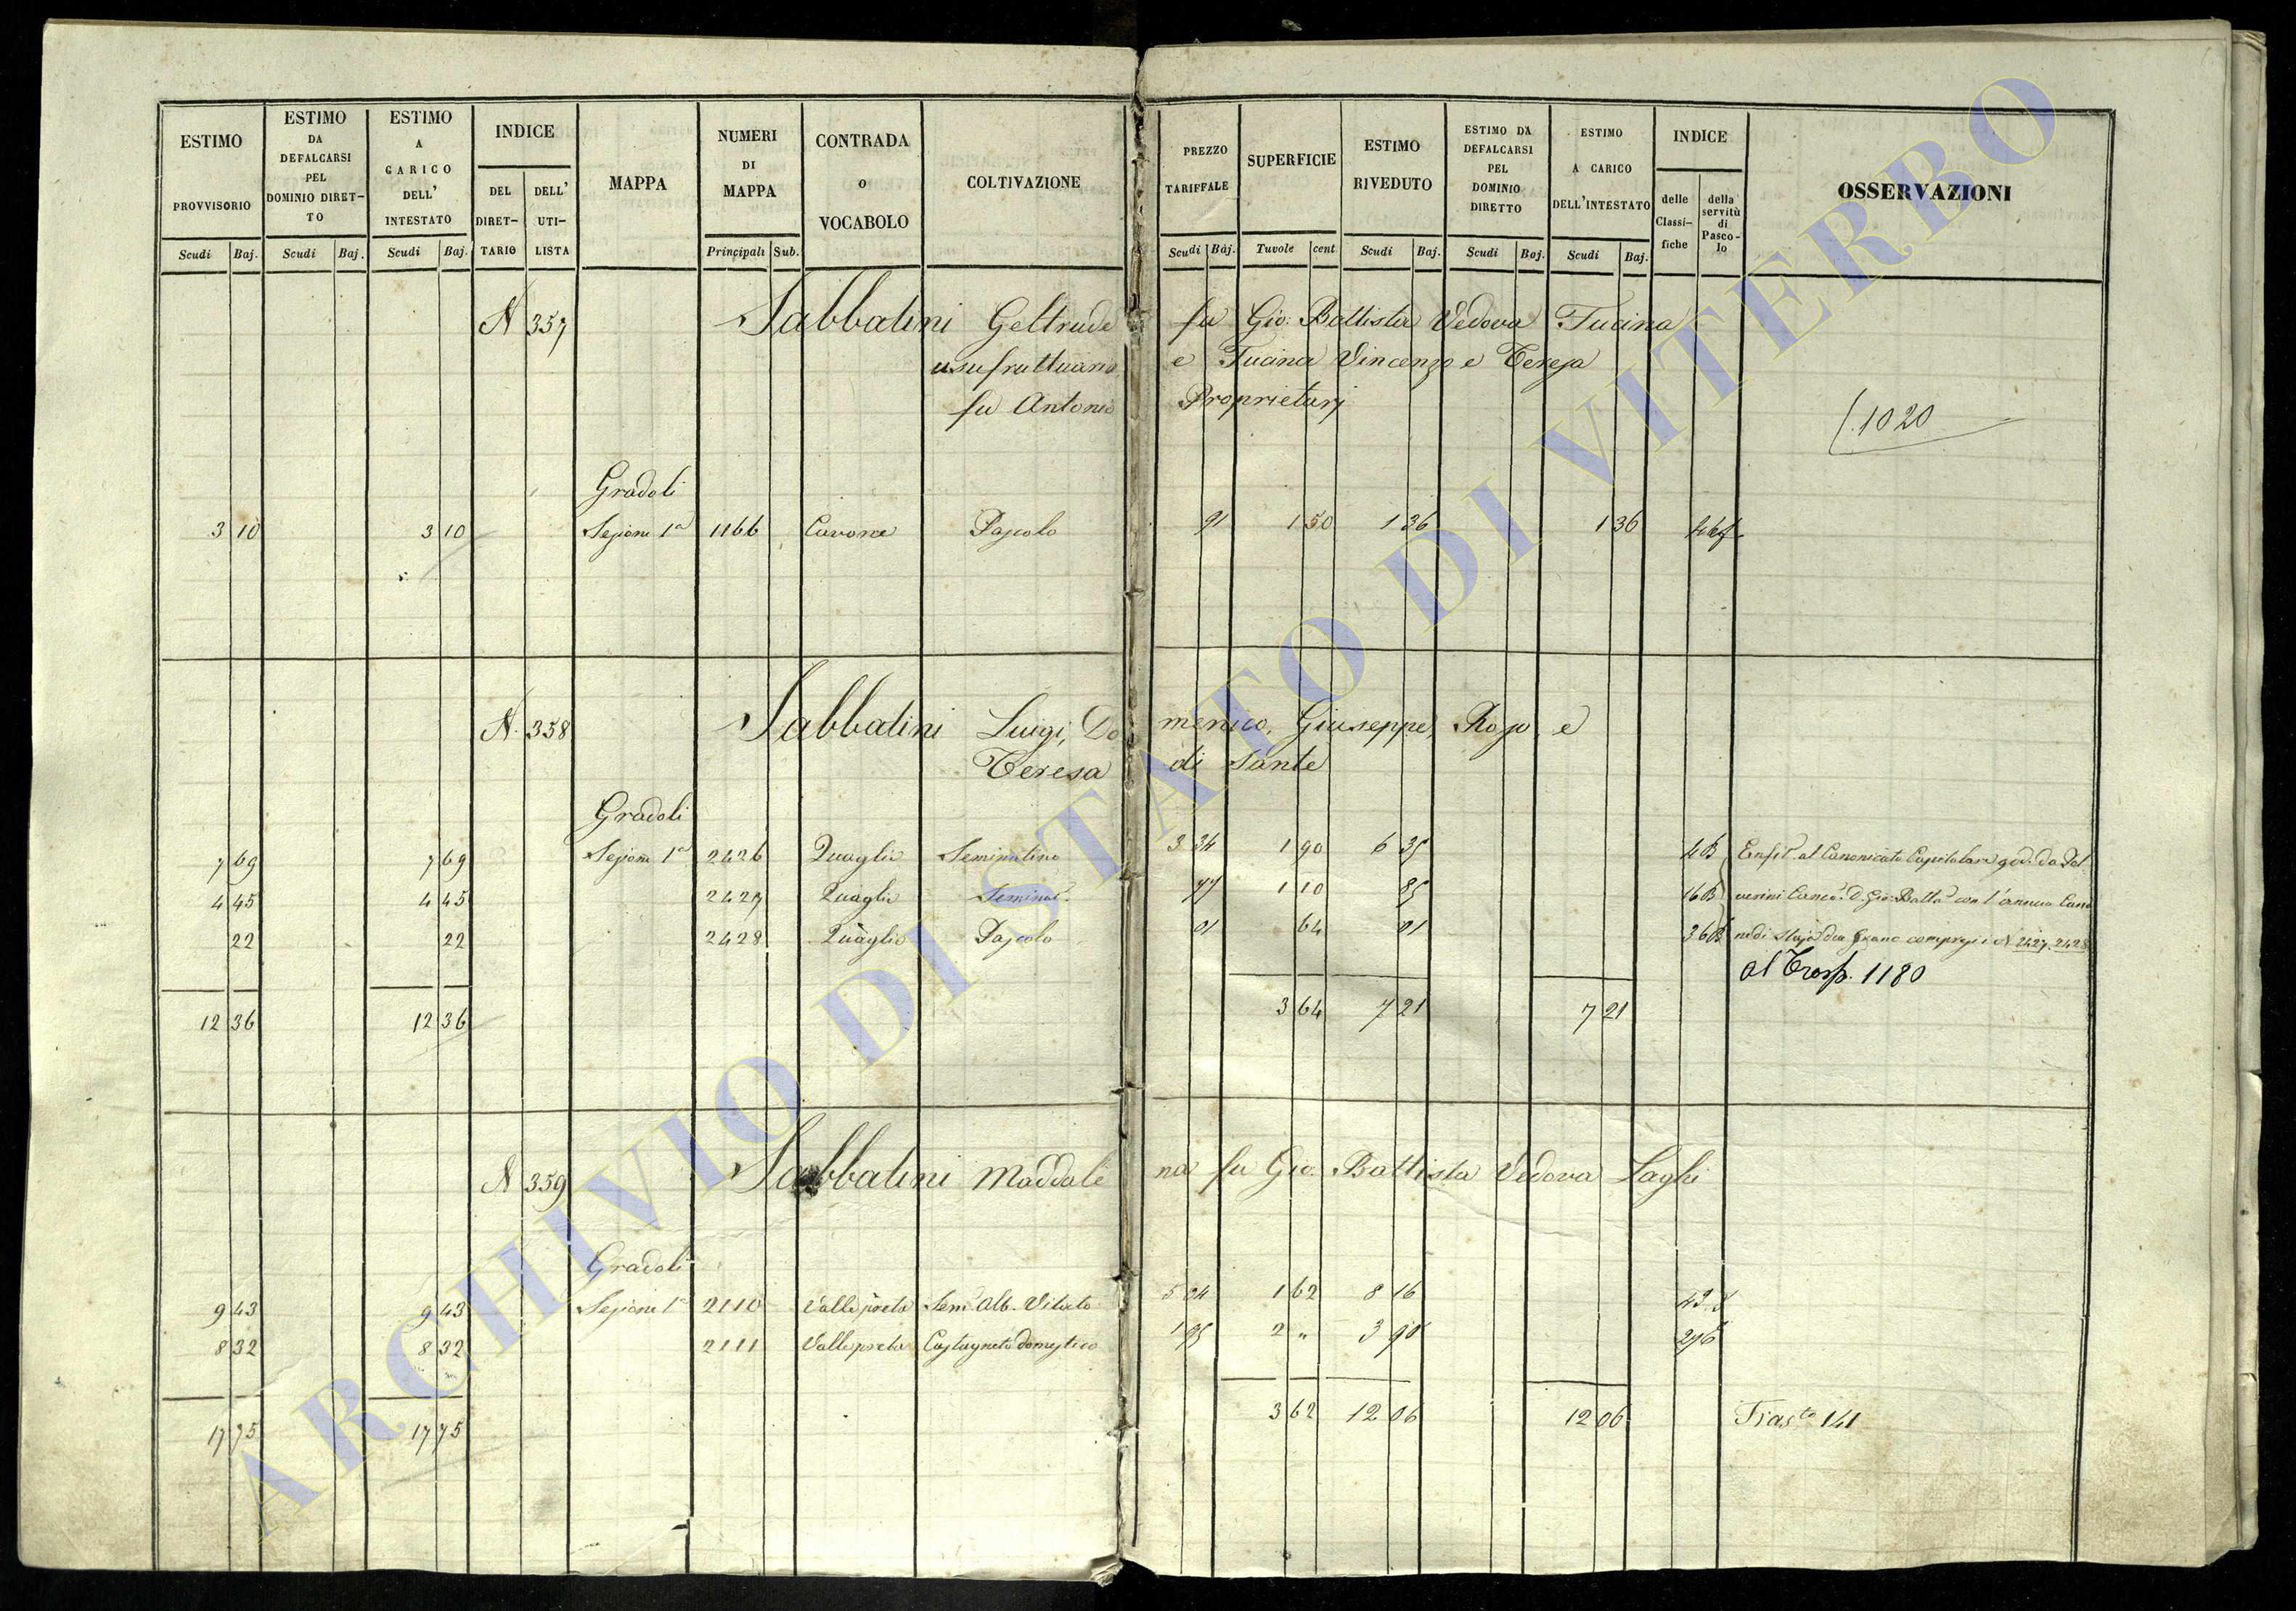 ESTIMO PROVVISORIO Scudi Baj.
ESTIMO DA DEFALCARSI PEL DOMINIO DIRET-TO Scudi Baj.
ESTIMO A CARICO DELL' INTESTATO Scudi Baj.
INDICE DEL DIRET-TARIO DELL' UTI-LISTA
MAPPA
NUMERI DI MAPPA Principali Sub.
CONTRADA o VOCABOLO
COLTIVAZIONE
PREZZO TARIFFALE Scudi Baj.
SUPERFICIE Tavole cent
ESTIMO RIVEDUTO Scudi Baj.
ESTIMO DA DEFALCARSI PEL DOMINIO DIRETTO Scudi Baj.
ESTIMO A CARICO DELL'INTESTATO Scudi Baj.
INDICE delle Classi-fiche della servitù di Pasco-lo
OSSERVAZIONI
N 357 Sabbatini Geltrude fu Gio: Battista Vedova Fucina
usufruttuaria e Fucina Vincenzo e Teresa
fu Antonio Proprietarj
1020
Gradoli
3 10 3 10 Sezione 1a 1166 Cavone Pascolo 91 1 50 1 36 1 36
N. 358 Sabbatini Luigi, Domenico, Giuseppe, Rosa e
Teresa di Sante
Gradoli
7 69 7 69 Sezione 1a 2426 Quaglia Seminativo 3 34 1 90 6 35 4 B Enfit. al Canonicato Capitolare god. da Pal
4 45 4 45 2427 Quaglia Seminat. 77 1 10 85 16 B Canco. D. Gio: Batta con l'annuo Cano
22 22 2428 Quaglia Pascolo 01 64 01 36 B ne di Staja due Grano compresi i N. 2427. 2428
al Trasp. 1180
12 36 12 36 3 64 7 21 7 21
N 359 Sabbatini Maddalena fu Gio. Battista Vedova Laghi
Gradoli
9 43 9 43 Sezione 1a 2110 Valle preta Sem. Alb. Vitato 5 04 1 62 8 16
8 32 8 32 2111 Valle preta Castagneto domestico 1 95 2 " 3 90
17 75 17 75 3 62 12 06 12 06 Trasto 141
ARCHIVIO DI STATO DI VITERBO